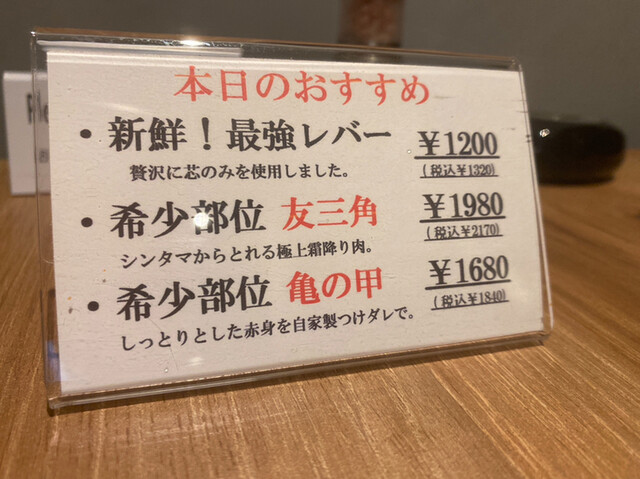 本日のおすすめ
・新鮮！最強レバー ￥1200
贅沢に芯のみを使用しました。 (税込￥1320)
・希少部位 友三角 ￥1980
シンタマからとれる極上霜降り肉。 (税込￥2170)
・希少部位 亀の甲 ￥1680
しっとりとした赤身を自家製つけダレで。 (税込￥1840)